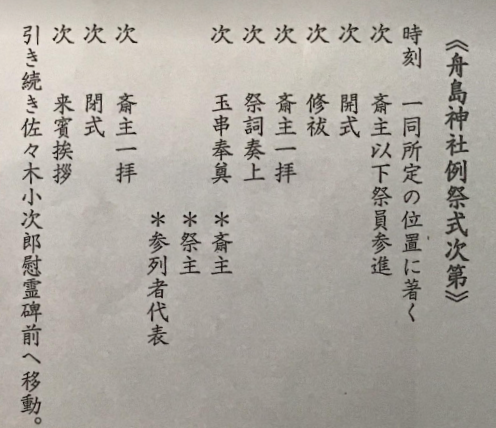 《舟島神社例祭式次第》
時刻　一同所定の位置に著く
次　斎主以下祭員参進
次　開式
次　修祓
次　斎主一拝
次　祭詞奏上
次　玉串奉奠　＊斎主
＊祭主
＊参列者代表
次　斎主一拝
次　閉式
次　来賓挨拶
引き続き佐々木小次郎慰霊碑前へ移動。